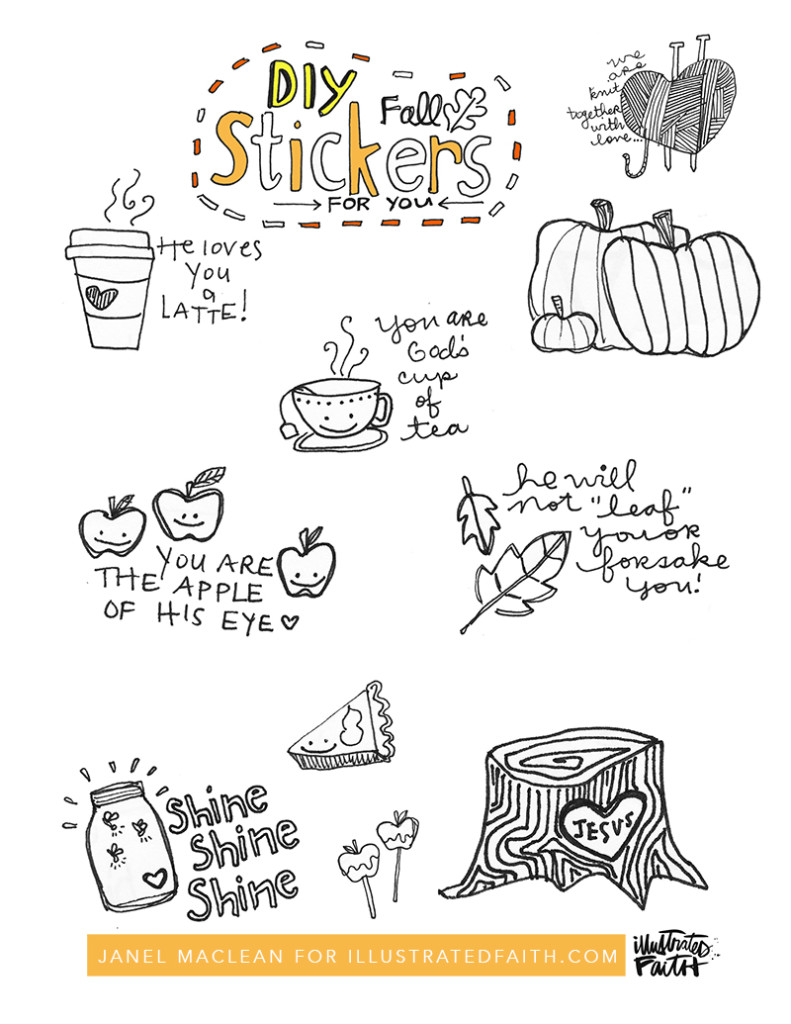 DIY
Fall
Stickers
FOR YOU
we
are
knit
together
with
love...
He loves
You
a
LATTE!
you are
God's
cup
of
tea
YOU ARE
THE APPLE
OF HIS EYE
he will
not "leaf"
you or
forsake
you!
Shine
Shine
Shine
JESUS
JANEL MACLEAN FOR ILLUSTRATEDFAITH.COM
illustrated
FAITH